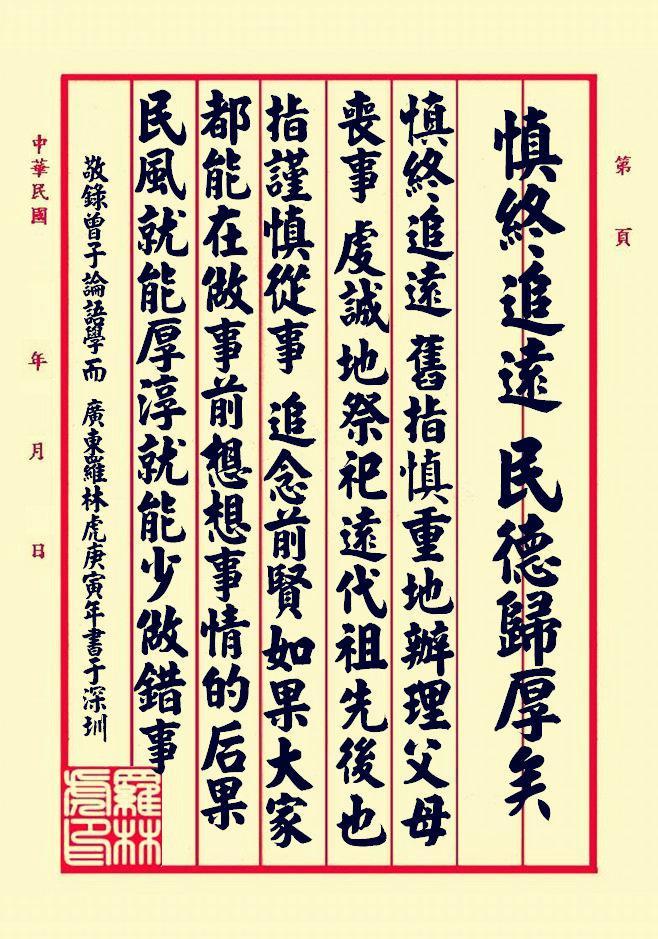 第 頁
慎終追遠 民德歸厚矣
慎終追遠 舊指慎重地辦理父母
喪事 虔誠地祭祀遠代祖先後也
指謹慎從事 追念前賢如果大家
都能在做事前想想事情的后果
民風就能厚淳就能少做錯事
敬錄曾子論語學而 廣東羅林虎庚寅年書于深圳
中華民國 年 月 日
羅林虎印